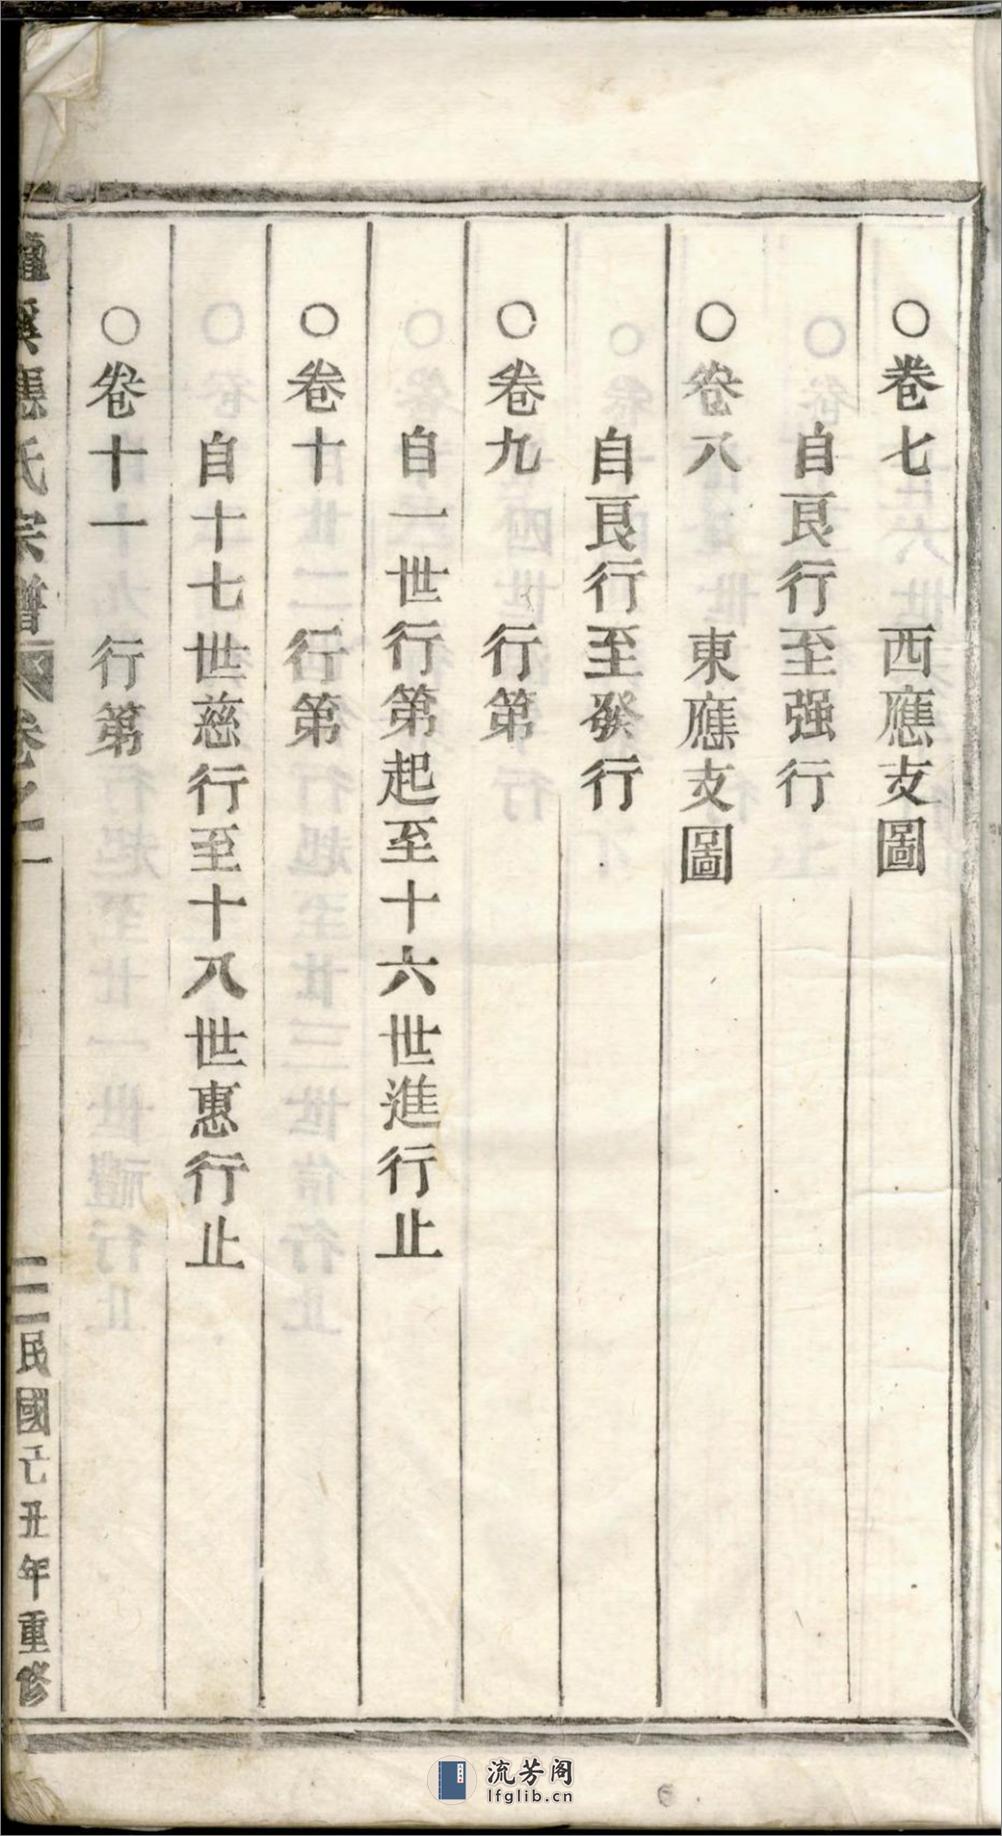 ○卷七　西應支圖
自良行至强行
○卷八　東應支圖
自良行至發行
○卷九　行第
自一世行第起至十六世進行止
○卷十　行第
自十七世慈行至十八世惠行止
○卷十一　行第
溪應氏宗譜　卷之一　二　民國己丑年重修
流芳阁
lfglib.cn